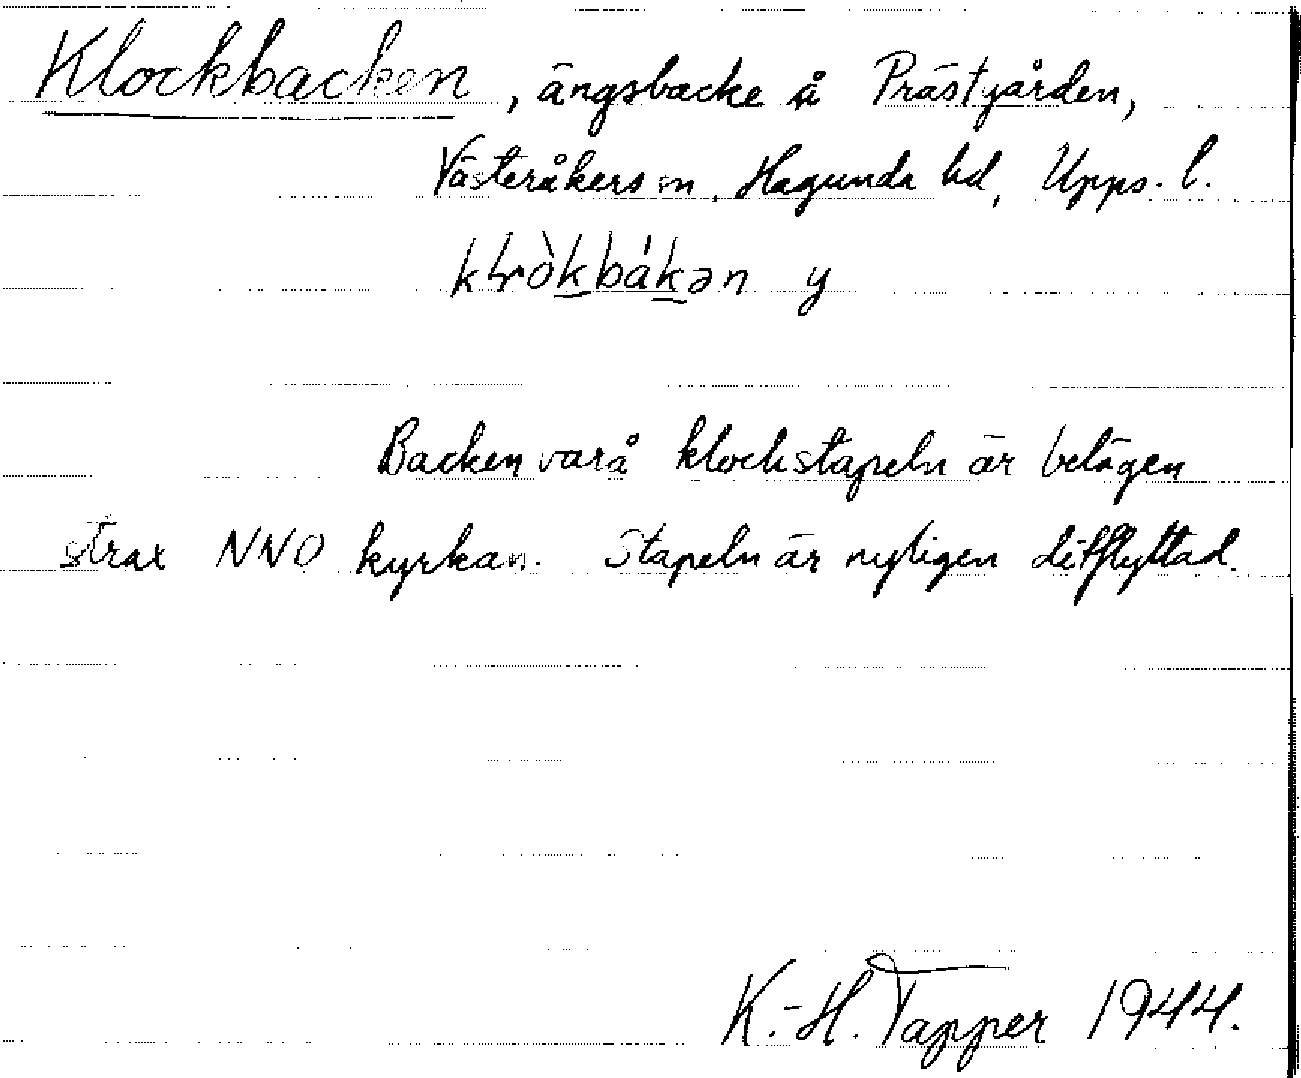 Klockbacken, ängsbacke å Prästgården,
Västeråkers sn, Hagunda hd, Upps. l.
Backen varå klockstapeln är belägen
strax NNO kyrkan. Stapeln är nyligen ditflyttad.
K.-H. Tapper 1944.